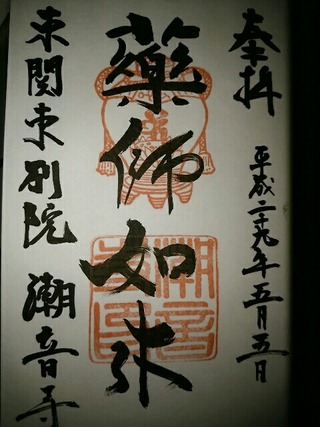 奉拝
平成二十九年五月五日
藥師如来
東関東別院 潮音寺